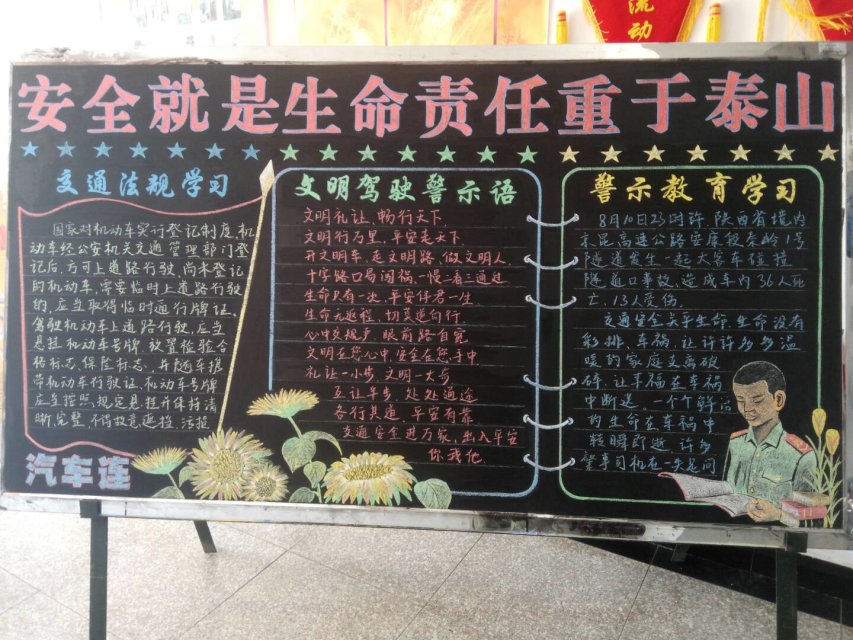 流
动
安全就是生命责任重于泰山
交通法规学习
国家对机动车实行登记制度,机
动车经公安机关交通管理部门登
记后,方可上道路行驶,尚未登记
的机动车,需要临时上道路行驶
的,应当取得临时通行牌证。
驾驶机动车上道路行驶,应当
悬挂机动车号牌,放置检验合
格标志、保险标志,并随车携
带机动车行驶证,机动车号牌
应当按照规定悬挂并保持清
晰,完整,不得故意遮挡、污损
汽车连
文明驾驶警示语
文明礼让、畅行天下,
文明行万里,平安走天下
开文明车,走文明路,做文明人,
十字路口易闯祸,一慢二看三通过
生命只有一次,平安伴君一生
生命无返程,切莫逆向行
心中交规严,眼前路自宽
文明在您心中,安全在您手中
礼让一小步,文明一大步
互让半步,处处通途
各行其道,平安有靠
交通安全进万家,出入平安
你我他
警示教育学习
8月10日23时许,陕西省境内
京昆高速公路安康段秦岭1号
隧道发生一起大客车碰撞
隧道口事故,造成车内36人死
亡,13人受伤。
交通安全关乎生命,生命没有
彩排,车祸,让许许多多温
暖的家庭支离破
碎,让幸福在车祸
中断送,一个个鲜活
的生命在车祸中
转瞬即逝,许多
肇事司机在一失足间